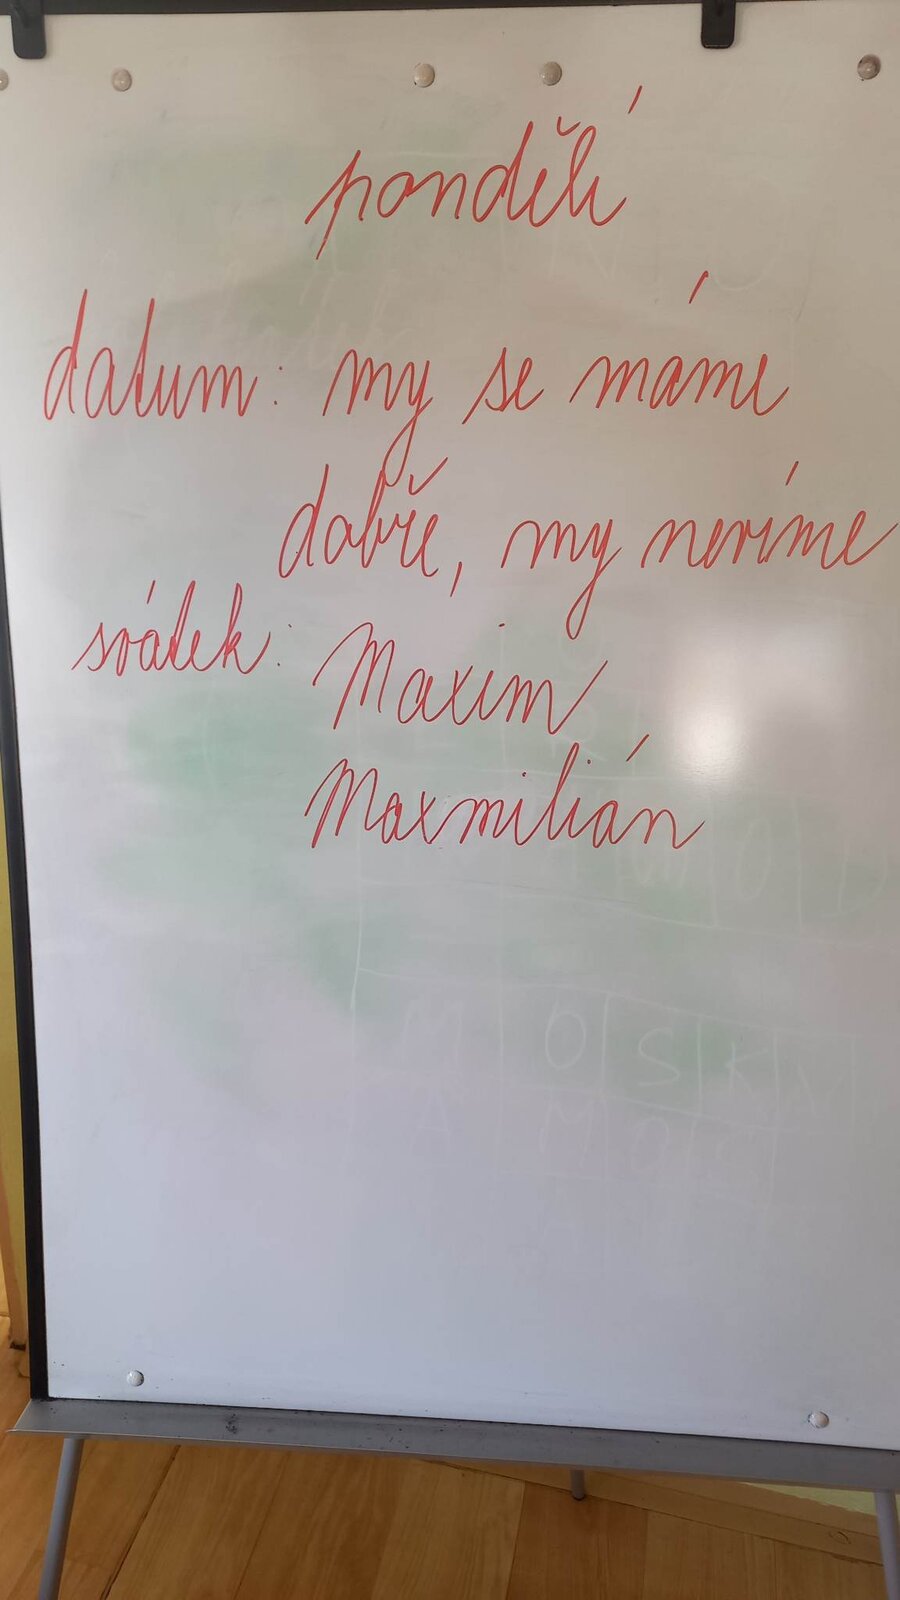 pondělí
datum: my se máme
dobře, my nevíme
svátek: Maxim
Maxmilián
M O S K V A
A M O S